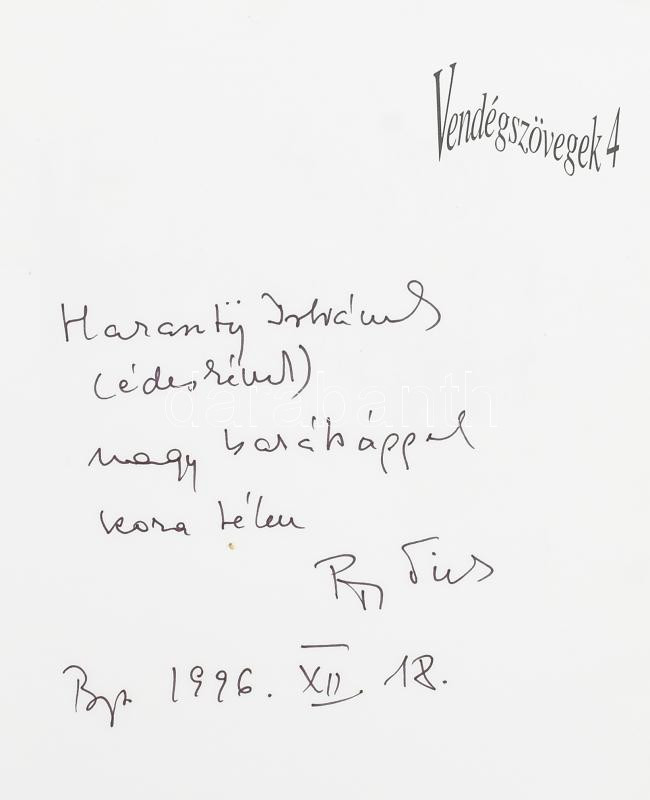 Vendégszövegek 4
Harantÿ Istvánnak
(édesrének)
nagy barátsággal
kora télen
darabanth
Bp. 1996. XII. 18.